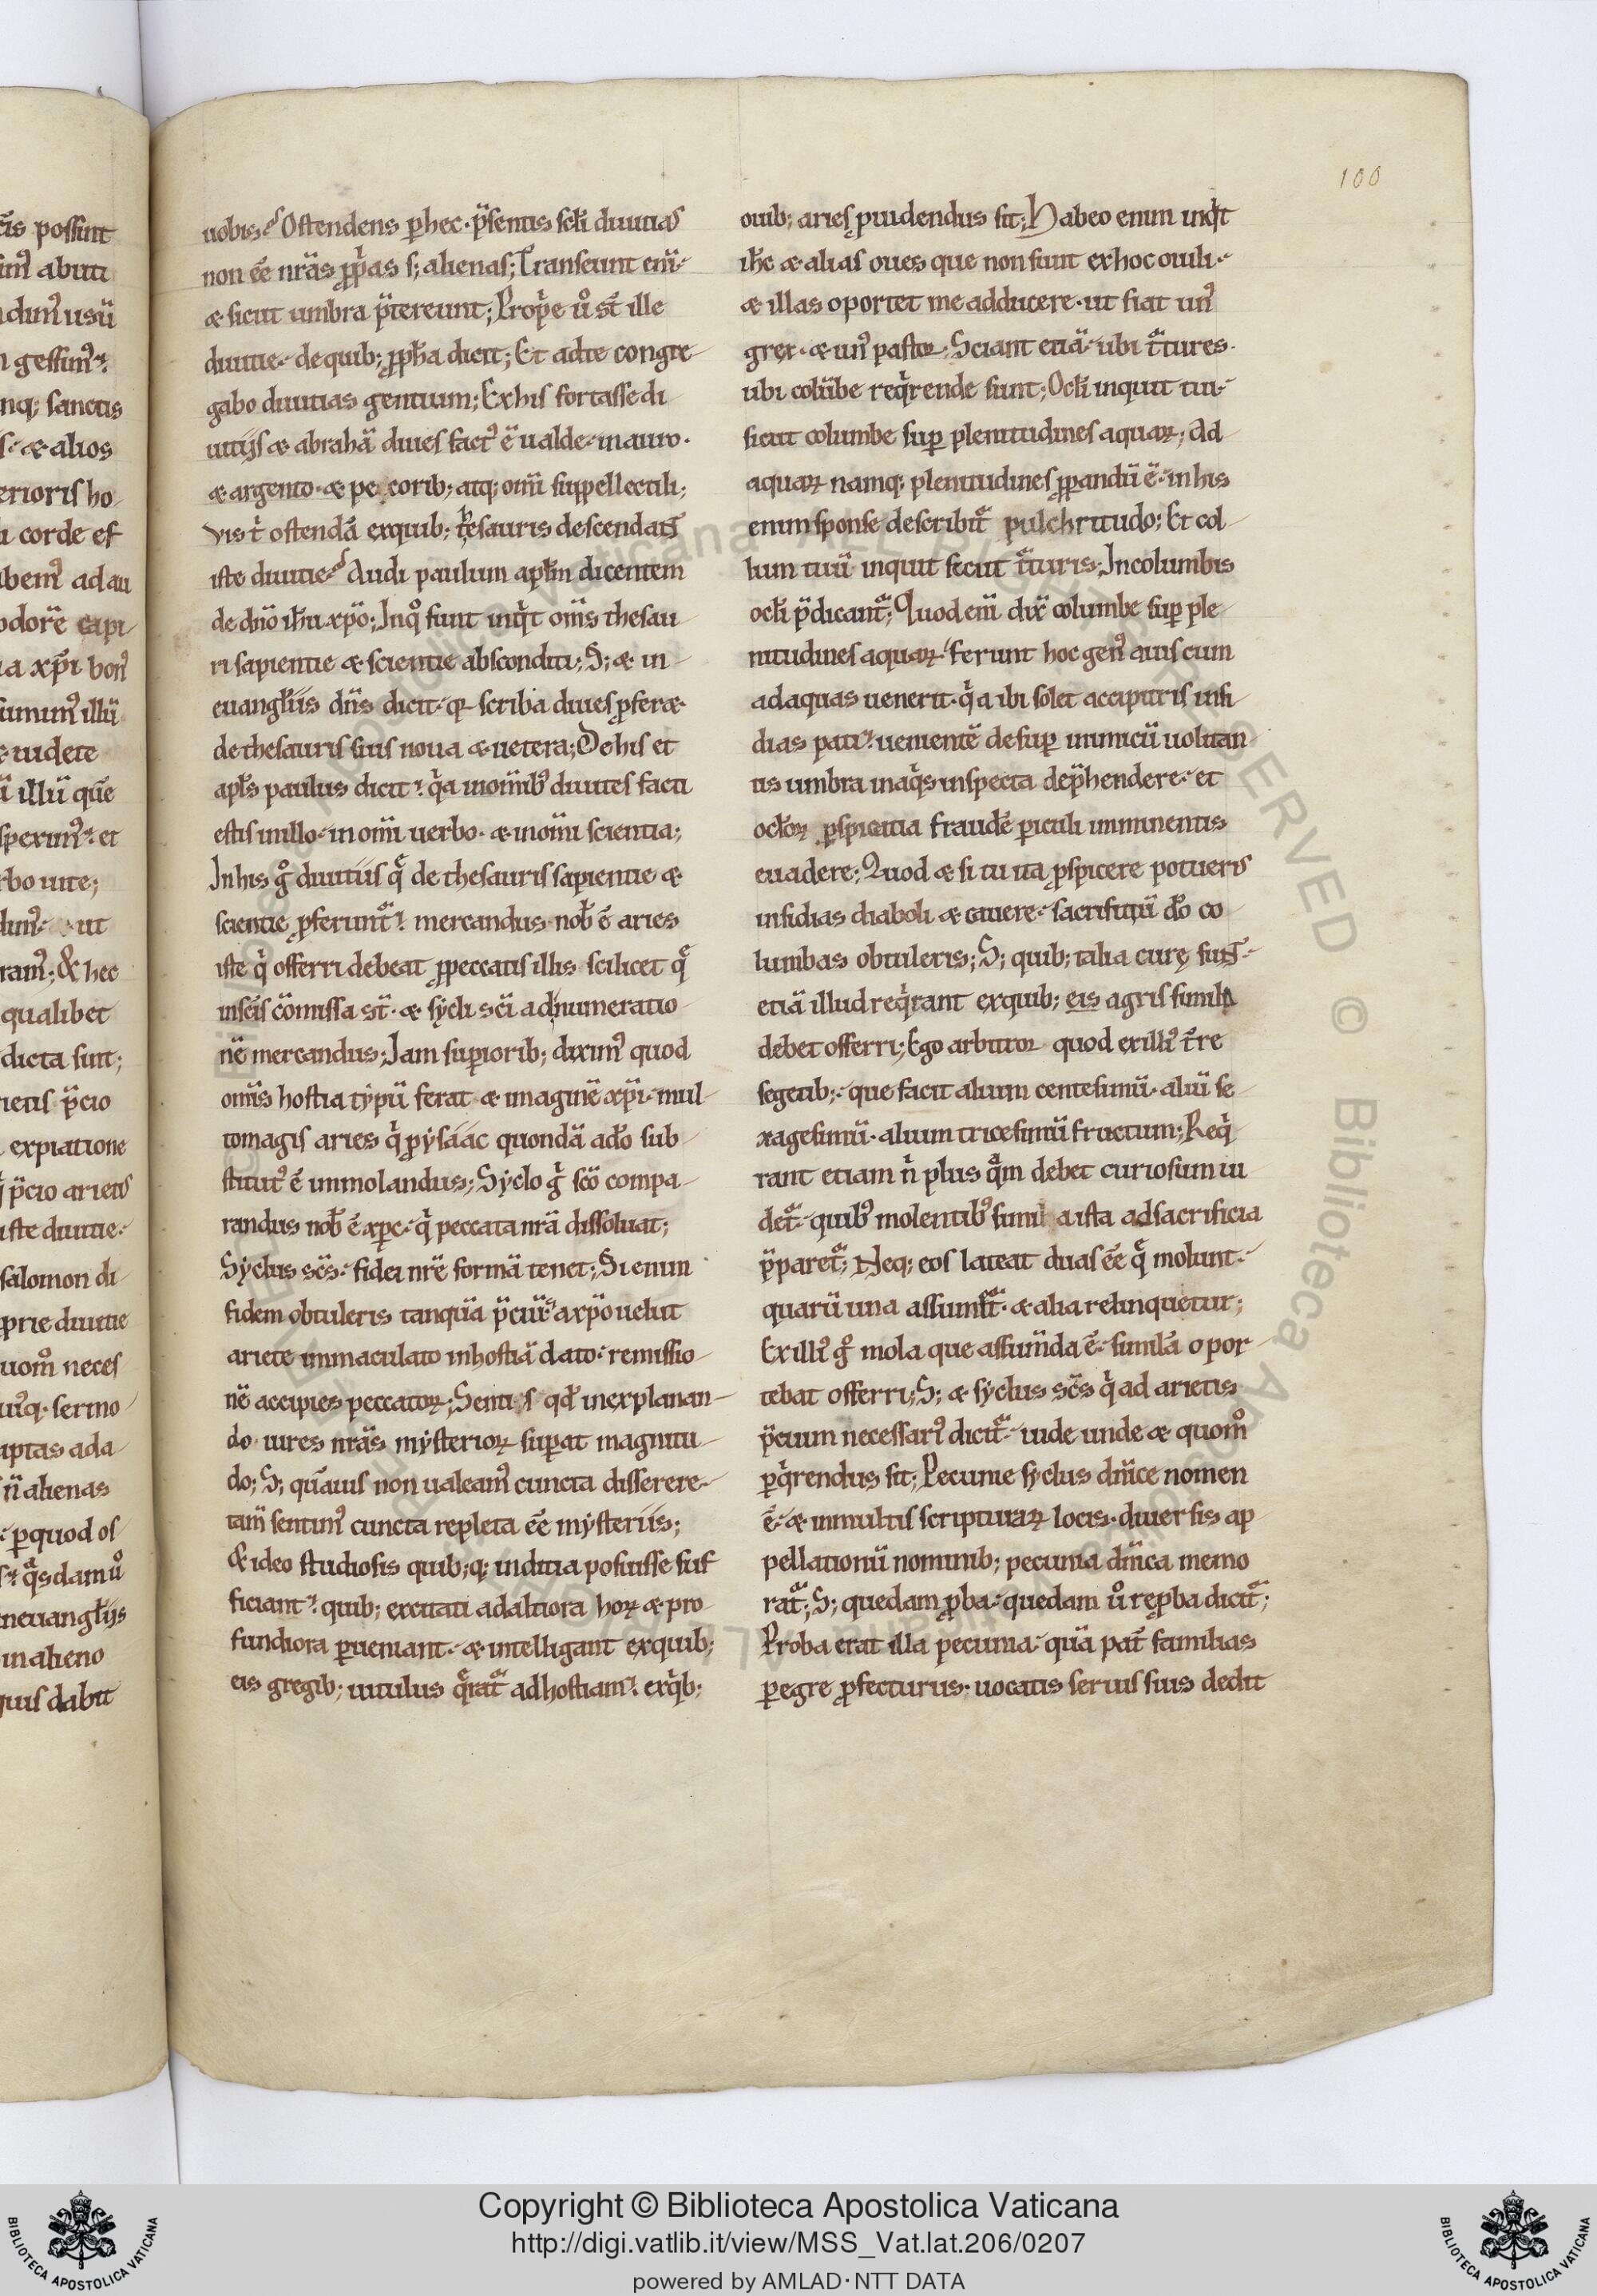 100
c̄is possunt
im᷒ abuti
dim᷒ usū
gessim᷒
nq; sanctis
s · & alios
erioris ho
corde ef
bem᷒ ad au
odorē capi
ia xp̄i bon᷒
sumim᷒ illū
uidete
illū quē
sperim᷒ · et
rbo uite;
dim᷒ · ut
ram᷒; & hec
qualibet
dicta sunt;
ietis p̄cio
expiatione
p̄cio arietis
iste diuitie ·
salomon di
prie diuitie
uom̊ neces
uīq · sermo
iptas ada
n̄ alienas
· ꝑquod os
q̃sdam ů
neuangl̄ijs
in alieno
quis dabit
uobis? Ostendens ꝑ hec · p̄sentis scl̄i diuitias
non eē nrās ꝓprias s; alienas; Transeunt enī ·
& sicut umbra p̄tereunt; Proprie ů st̄ ille
diuitie · de quib; ꝓph̄a dicit; Et ad te congre
gabo diuitias gentium; Ex his fortasse di
uitijs & abrahā diues fact᷒ ē ualde · in auro ·
& argento · & pecorib; atq; om̄i suppellectili;
Vis t̉ ostendā ex quib; thesauris descendant
iste diuitie? Audi paulum apl̄m dicentem
de dn̄o ih̄u xp̄o; In q̊ sunt inq̇t om̄s thesau
ri sapientie & scientie absconditi; S; & in
euangl̄iis dn̄s dicit · qꝛ scriba diues ꝓfer&
de thesauris suis noua & uetera; De his et
apl̄s paulus dicit · q̇a in om̄ib᷒ diuites facti
estis in illo · in om̄i uerbo · & in om̄i scientia;
In his g̊ diuitiis q̃ de thesauris sapientie &
scientie ꝓferunt᷑ · mercandus nob̄ ē aries
iste q̇ offerri debeat ꝓ peccatis illis scilicet q̃
in sc̄is cōmissa st̄ · & sycli sc̄i adnumeratio
nē mercandus; Iam supiorib; dixim᷒ quod
om̄is hostia typū ferat & imaginē xp̄i · mul
tomagis aries q̇ ꝓ ysaac quondā a dō sub
stitut᷒ ē immolandus; Syclo g̊ sc̄o compa
randus nob̄ ē xp̄c · q̇ peccata nrā dissoluat;
Syclus sc̄s · fidei nrē formā tenet; Si enim
fidem obtuleris tanquā p̄ciū · a xp̄o uelut
ariete immaculato in hostiā dato · remissio
nē accipies peccatoꝝ; Senti s qd̄ in explanan
do uires nrās mysterioꝝ supat magnitu
do; S; quāuis non ualeam᷒ cuncta disserere ·
tam̄ sentim᷒ cuncta repleta eē mysteriis;
& ideo studiosis quib;q; inditia posuisse suf
ficiant · quib; excitati ad altiora hoꝝ & pro
fundiora ꝑueniant · & intelligant ex quib;
eis gregib; uitulus q̃rat᷑ ad hostiam · ex q̇b;
ouib; aries ꝓuidendus sit; Habeo enim inq̇t
ih̄c & alias oues que non sunt ex hoc ouili ·
& illas oportet me adducere · ut fiat un᷒
grex · & un᷒ pastor; Sciant etiā · ubi t᷑tures ·
ubi colūbe req̇rende sunt; Ocl̄i inquit tui ·
sicut columbe sup plenitudines aquaꝝ; Ad
aquaꝝ namq; plenitudines ꝓpandū ē · in his
enim sponse describit᷑ pulchritudo; Et col
lum tuū inquit sicut t᷑turis; In columbis
ocl̄i p̄dicant᷑; Quod em̄ dix̄ columbe sup ple
nitudines aquaꝝ · ferunt hoc gen᷒ auis cum
ad aquas uenerit · q̇a ibi solet accipitris insi
dias pati · uementē desup inimicū uolitan
tis umbra in aq̇s inspecta dep̄hendere · et
ocl̄oꝝ ꝑspicatia fraudē ꝑiculi imminentis
euadere; Quod & si tu ita ꝓspicere potueris
insidias diaboli & cauere · sacrifitiū dō co
lumbas obtuleris; S; quib; talia curę sunt ·
etiā illud req̇rant ex quib; eis agris simila
debet offerri; Ego arbitror quod ex illi᷒ t̄re
segetib; · que facit alium centesimū · aliū se
xagesimū · alium tricesimū fructum; Req̇
rant etiam n̄ plus q̃m debet curiosum iu
det᷑ · quib᷒ molentib᷒ simila ista ad sacrificia
p̄paret᷑; Neq; eos lateat duas eē q̃ molunt ·
quarū una assumet᷑ · & alia relinquetur;
Ex illi᷒ g̊ mola que assumēda ē · similā opor
tebat offerri; S; & syclus sc̄s q̇ ad arietis
p̄cium necessari᷒ dicit᷑ · uide unde & quom̊
ꝑq̇rendus sit; Pecunie syclus dn̄ice nomen
ē · & in multis scripturaꝝ locis · diuersis ap
pellationū nominib; pecunia dn̄ica memo
rat᷑; S; quedam ꝓba · quedam ů reꝓba dicit᷑;
Proba erat illa pecunia · quā pat̄ familias
ꝑegre ꝓfecturus · uocatis seruis suis dedit
Copyright © Biblioteca Apostolica Vaticana
http://digi.vatlib.it/view/MSS_Vat.lat.206/0207
powered by AMLAD·NTT DATA
BIBLIOTECA APOSTOLICA VATICANA
BIBLIOTECA APOSTOLICA VATICANA